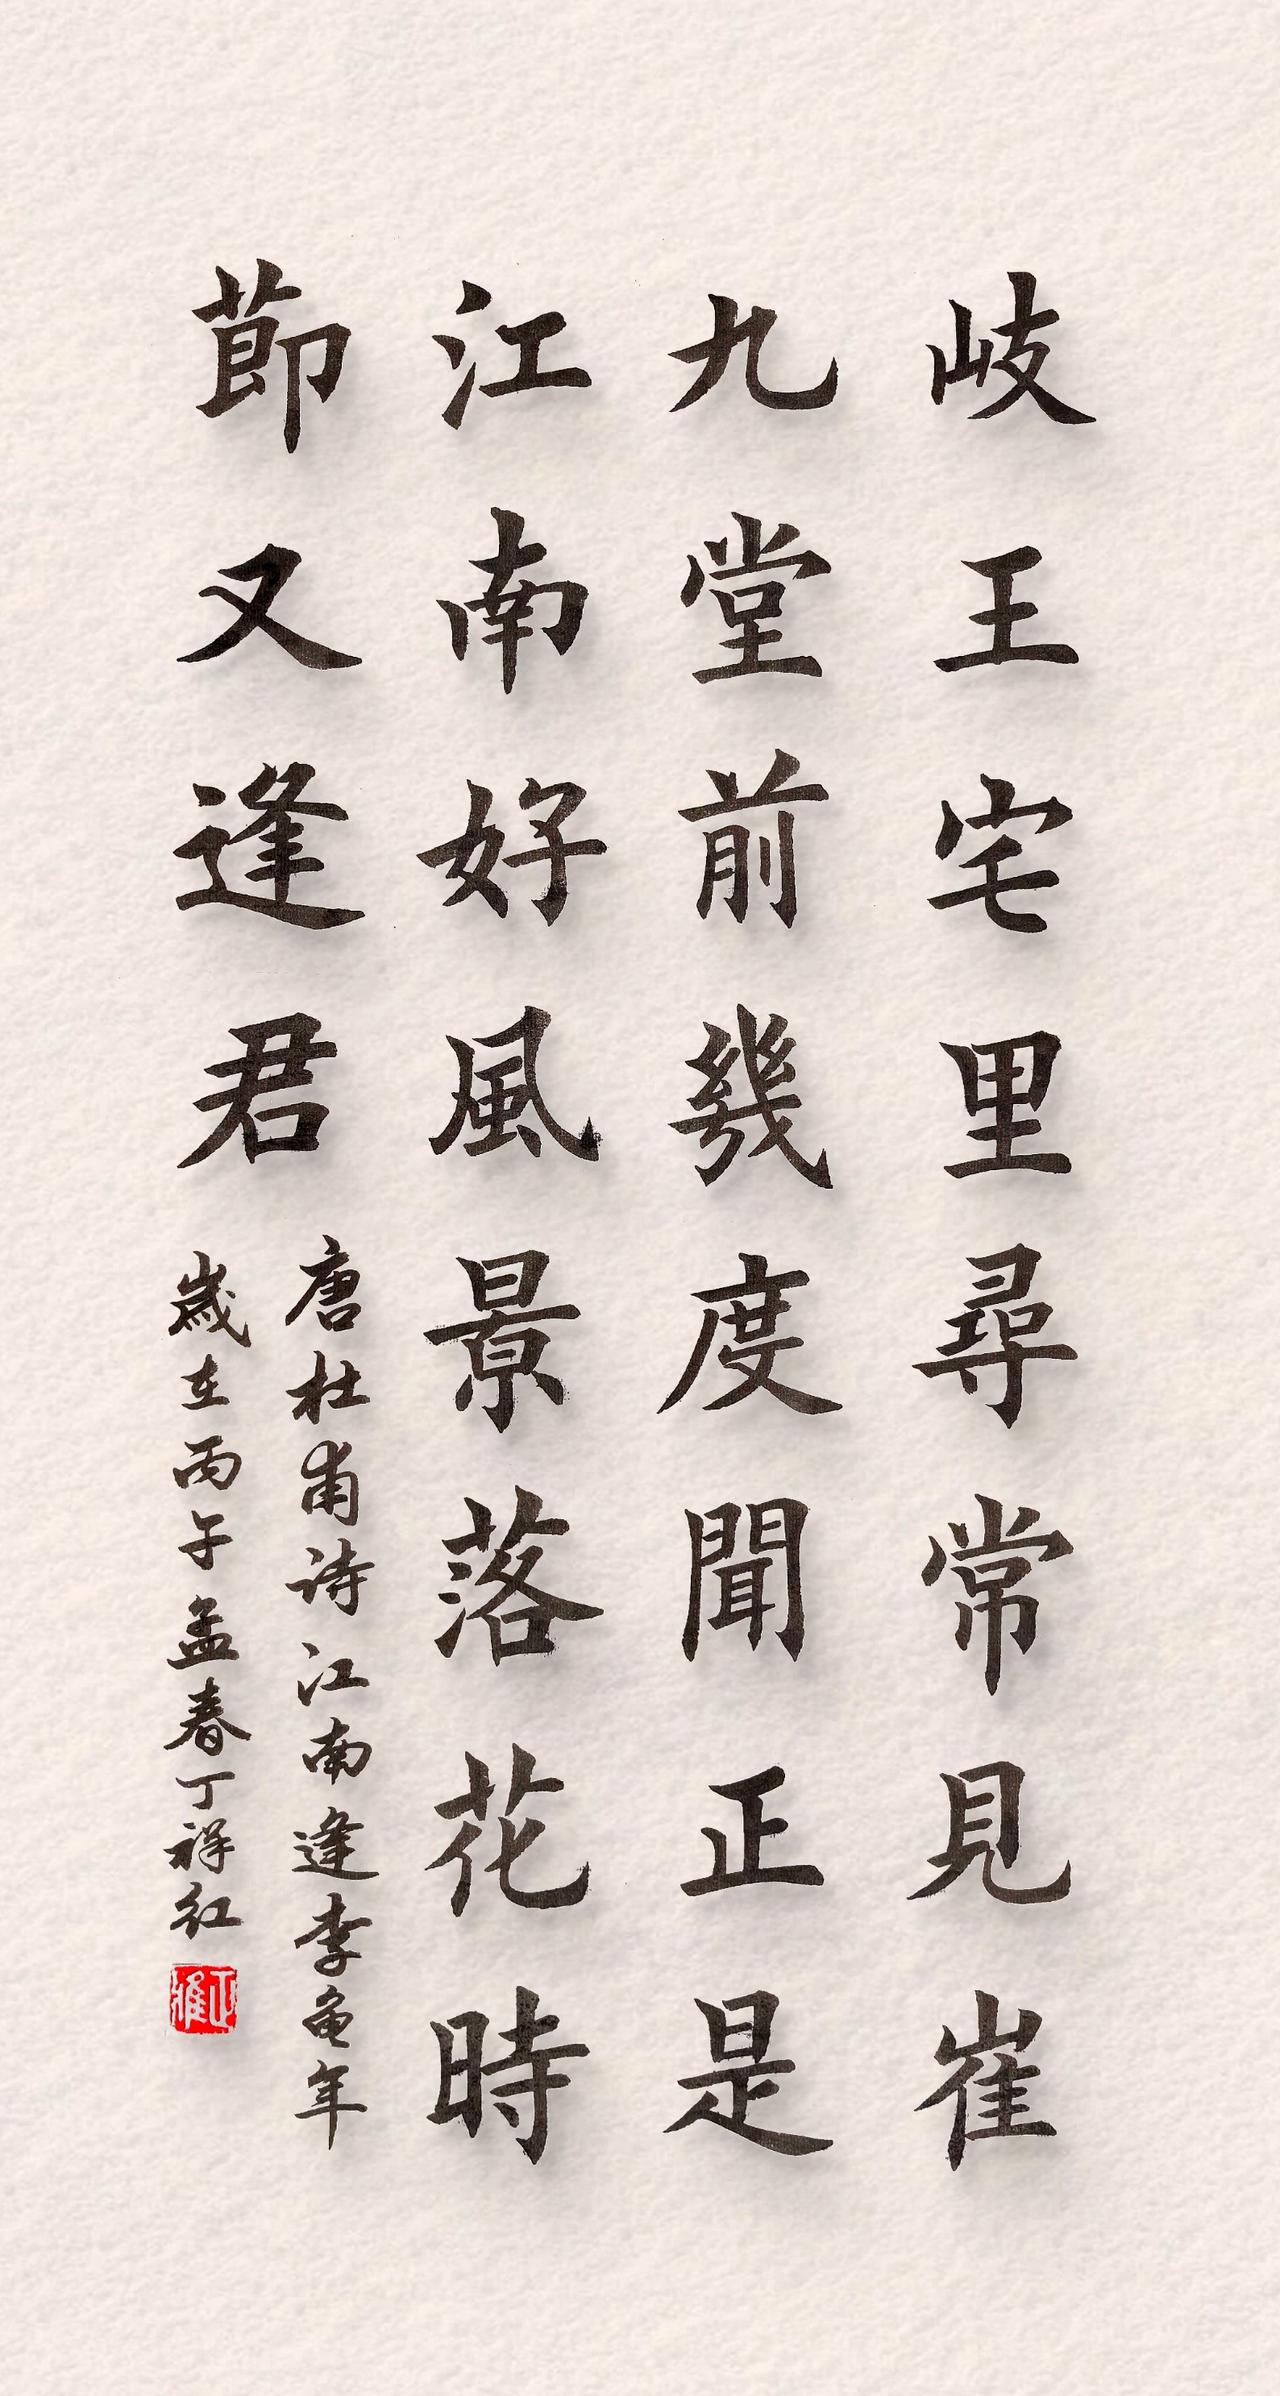 岐王宅里尋常見崔
九堂前幾度聞正是
江南好風景落花時
節又逢君
唐杜甫诗江南逢李龜年
歲在丙午孟春丁祥红